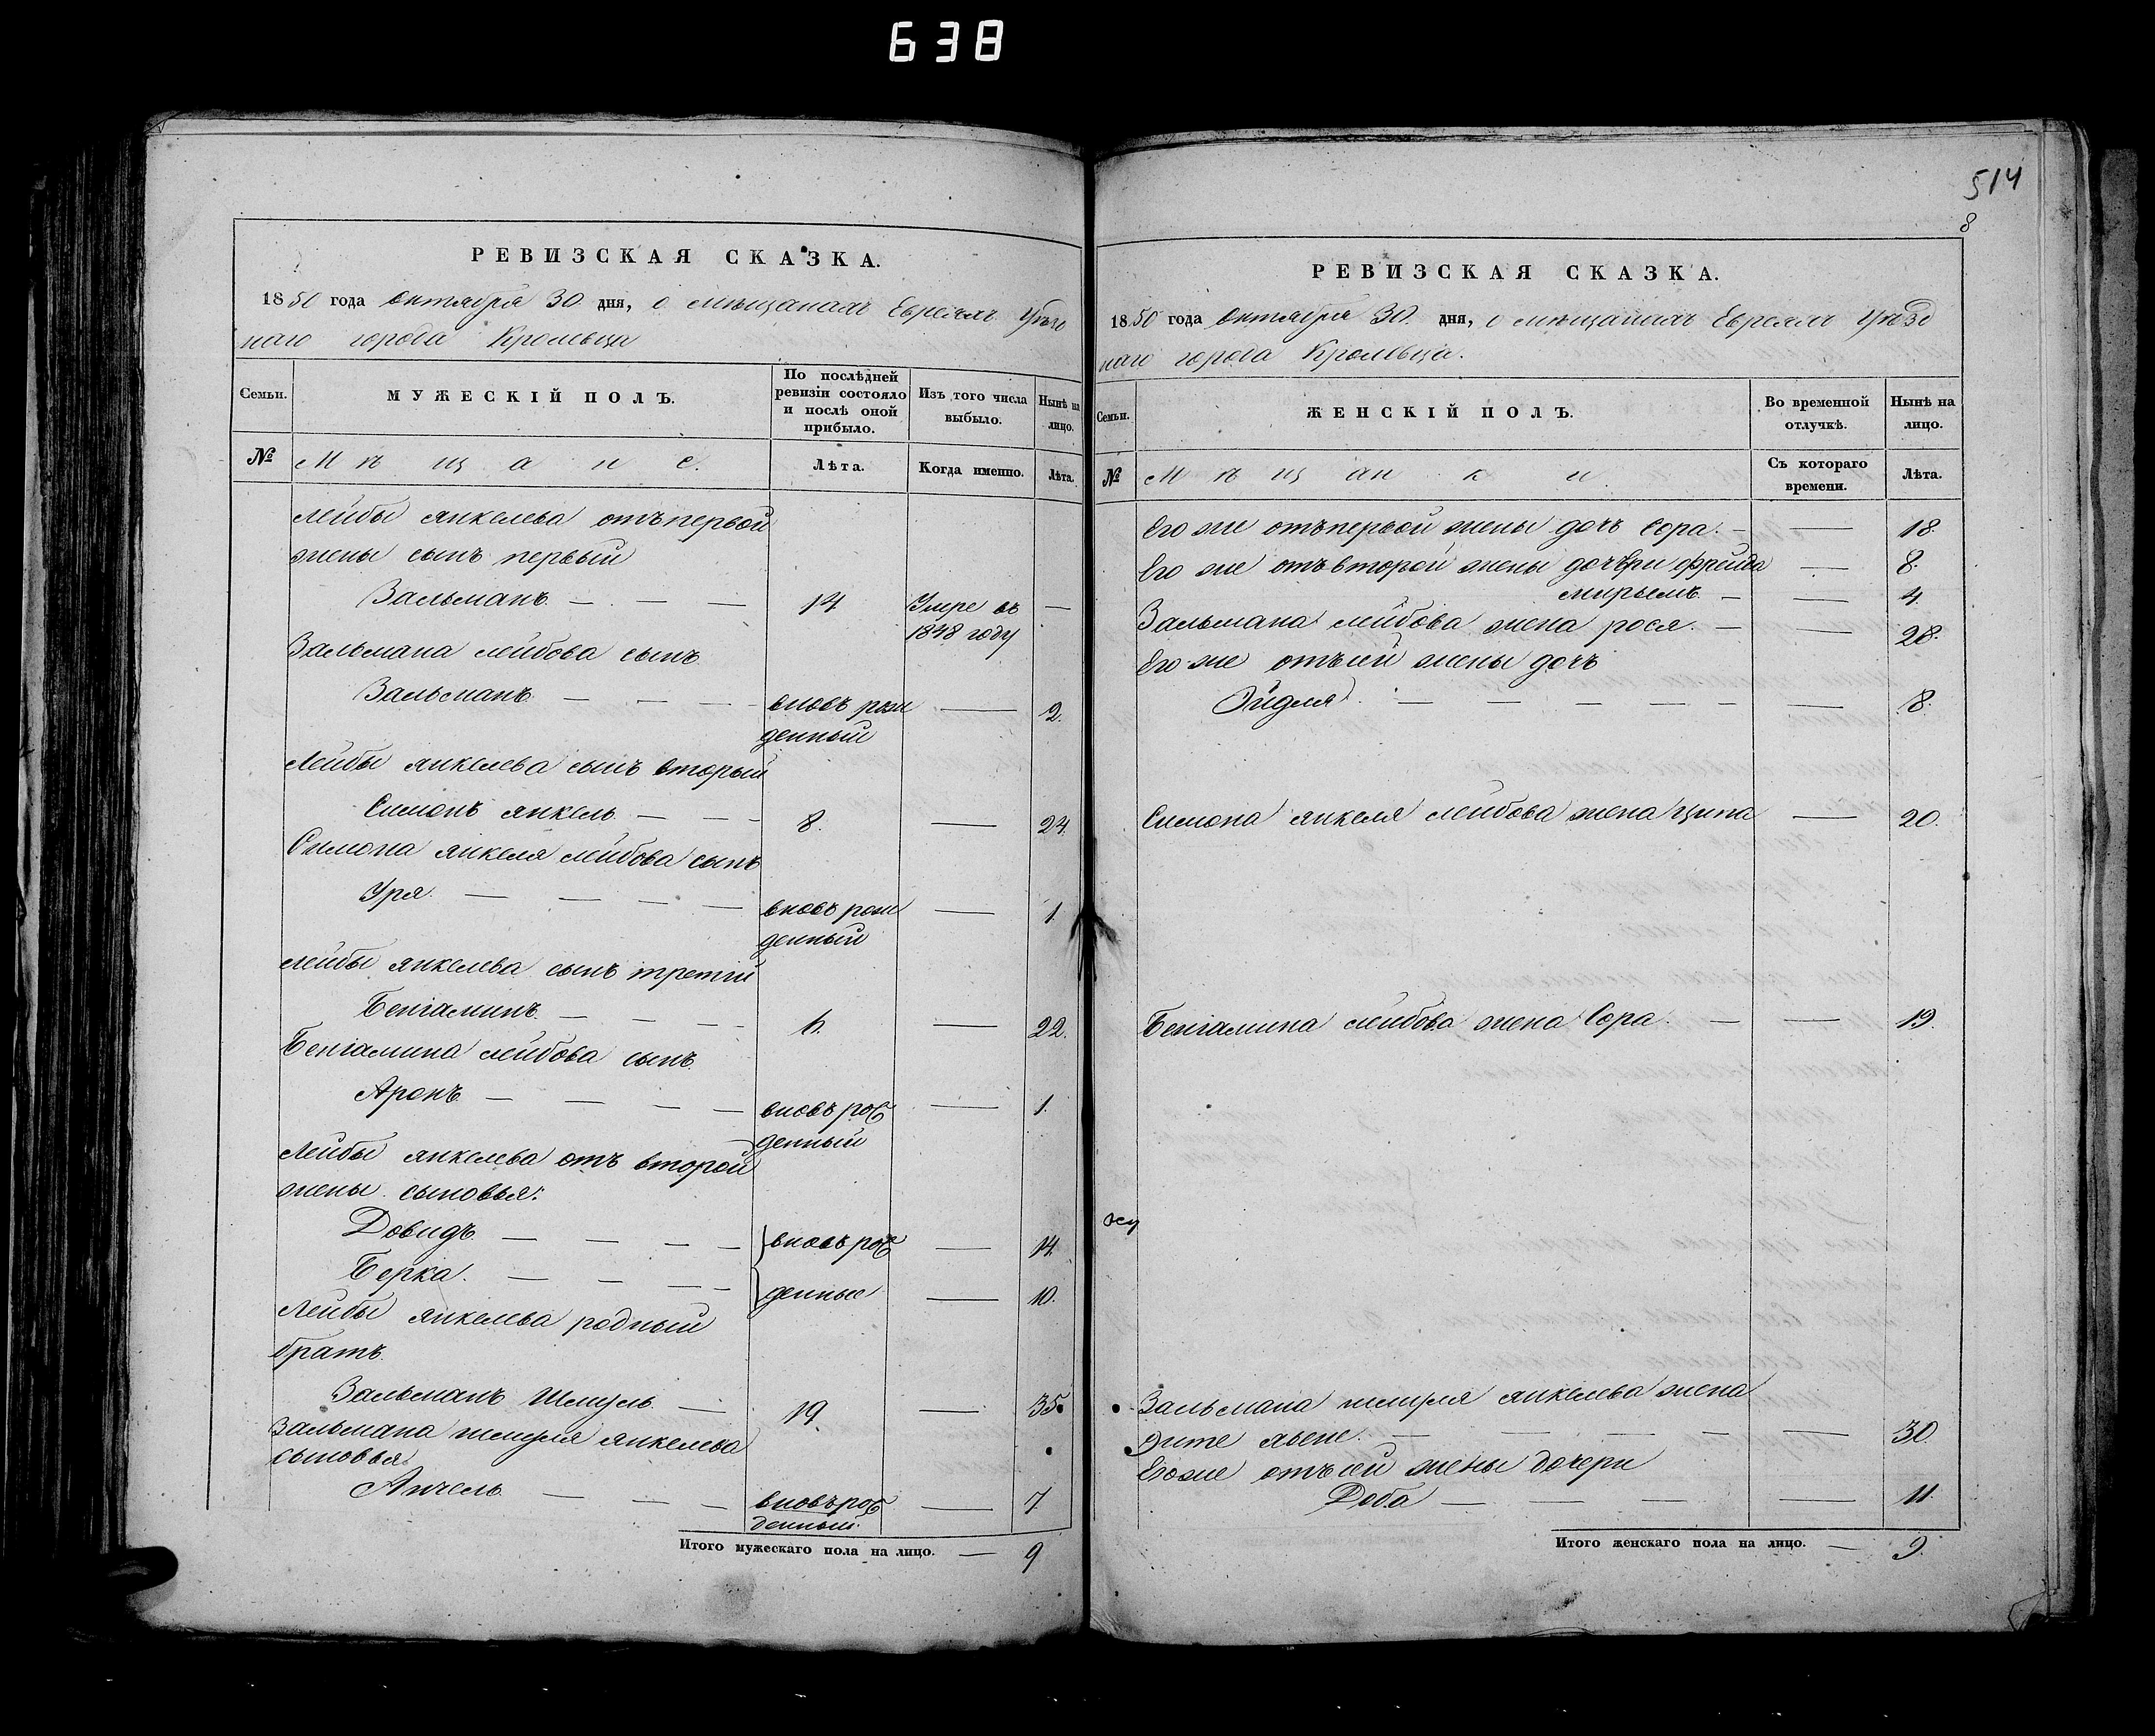 638
РЕВИЗСКАЯ СКАЗКА.
1850 года Октября 30 дня, о мѣщанахъ Евреяхъ Уѣзд
наго города Кролевца
Семьи.
МУЖЕСКІЙ ПОЛЪ.
По послѣдней ревизіи состояло и послѣ оной прибыло.
Изъ того числа выбыло.
Нынѣ на лицо.
№
Мѣщане.
Лѣта.
Когда именно.
Лѣта.
Лейбы Янкелева отъ первой
жены сынъ первый
Зальманъ — — — 14 Умре въ —
1848 году
Зальмана Лейбова сынъ
Зальманъ — — — вновь рож — 2.
денный
Лейбы Янкелева сынъ вторый
Симонъ Янкель — — — 8. — 24.
Симона Янкеля Лейбова сынъ
Уря. — — — — вновь рож — 1.
денный
Лейбы Янкелева сынъ третій
Беніаминъ — — — 6. — 22.
Беніамина Лейбова сынъ
Аронъ — — — — вновь рож — 1.
денный
Лейбы Янкелева отъ второй
жены сыновья:
Довидъ — — — — вновь рож — 14
Берка. — — — денные — 10.
Лейбы Янкелева родный
братъ
Зальманъ Шмуль — 19. — 35.
Зальмана Шмуля Янкелева
сыновья
Анчель — — — вновь рож — 7
денный.
Итого мужескаго пола на лицо. — 9
514
8
РЕВИЗСКАЯ СКАЗКА.
1850 года Октября 30. дня, о мѣщанахъ Евреяхъ Уѣзд
наго города Кролевца.
Семьи.
ЖЕНСКІЙ ПОЛЪ.
Во временной отлучкѣ.
Нынѣ на лицо.
№
Мѣщанки.
Съ котораго времени.
Лѣта.
Его же отъ первой жены дочь Сора. — — 18.
Его же отъ второй жены дочери Фрейда — 8.
Мирьямъ — — 4.
Зальмана Лейбова жена Рося. — — 28.
Его же отъ сей жены дочь
Эйдля. — — — — — — 8.
Симона Янкеля Лейбова жена Ципа — 20.
Беніамина Лейбова жена Сора. — — 19.
Зальмана Шмуля Янкелева жена
— — — — — 30.
Его же отъ сей жены дочери
Доба — — — — 11.
Итого женскаго пола на лицо. — 9.